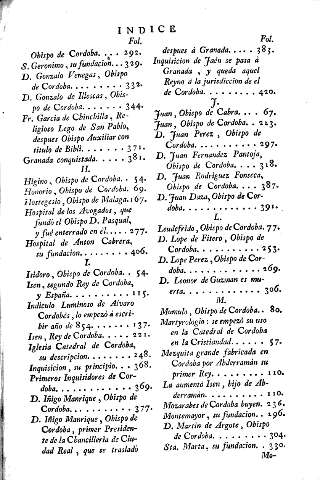 INDICE
Fol.
Obispo de Cordoba. . . . 292.
S. Geronimo, su fundacion. . . 329.
D. Gonzalo Venegas, Obispo
de Cordoba. . . . . . . . . 332.
D. Gonzalo de Illescas, Obis-
po de Cordoba. . . . . . . 344.
Fr. Garcia de Chinchilla, Re-
ligioso Lego de San Pablo,
despues Obispo Auxiliar con
titulo de Bibli. . . . . . . 371.
Granada conquistada. . . . . 381.
H.
Higino, Obispo de Cordoba. . 54.
Honorio, Obispo de Cordoba. 69.
Hostegesio, Obispo de Malaga. 167.
Hospital de los Avogados, que
fundó el Obispo D. Pasqual,
y fué enterrado en él. . . . . 277.
Hospital de Anton Cabrera,
su fundacion. . . . . . . . 406.
I.
Isidoro, Obispo de Cordoba. . 54.
Isen, segundo Rey de Cordoba,
y España. . . . . . . . . . 115.
Indiculo Luminoso de Alvaro
Cordobés, lo empezó á escri-
bir año de 854. . . . . . . 137.
Isen, Rey de Cordoba. . . . . 221.
Iglesia Catedral de Cordoba,
su descripcion. . . . . . . 248.
Inquisicion, su principio. . . 368.
Primeros Inquisidores de Cor-
doba. . . . . . . . . . . . 369.
D. Iñigo Manrique, Obispo de
Cordoba. . . . . . . . . . 377.
D. Iñigo Manrique, Obispo de
Cordoba, primer Presiden-
te de la Chancilleria de Ciu-
dad Real, que se trasladó
Fol.
despues á Granada. . . . . 383.
Inquisicion de Jaén se pasa á
Granada, y queda aquel
Reyno á la jurisdiccion de el
de Cordoba. . . . . . . . . 420.
J.
Juan, Obispo de Cabra. . . . 67.
Juan, Obispo de Cordoba. . . 213.
D. Juan Perez, Obispo de
Cordoba. . . . . . . . . . 297.
D. Juan Fernandez Pantoja,
Obispo de Cordoba. . . . . 318.
D. Juan Rodriguez Fonseca,
Obispo de Cordoba. . . . . 387.
D. Juan Daza, Obispo de Cor-
doba. . . . . . . . . . . . 391.
L.
Leudefrido, Obispo de Cordoba. 77.
D. Lope de Fitero, Obispo de
Cordoba. . . . . . . . . . 253.
D. Lope Perez, Obispo de Cor-
doba. . . . . . . . . . . . 269.
D. Leonor de Guzman es mu-
erta. . . . . . . . . . . . 306.
M.
Mumulo, Obispo de Cordoba. . 80.
Martyrologio: se empezó su uso
en la Catedral de Cordoba
en la Cristiandad. . . . . . 57.
Mezquita grande fabricada en
Cordoba por Abderramán su
primer Rey. . . . . . . . . 110.
La aumenta Isen, hijo de Ab-
derramán. . . . . . . . . . 110.
Mozarabes de Cordoba huyen. 236.
Montemayor, su fundacion. . 296.
D. Martin de Argote, Obispo
de Cordoba. . . . . . . . . 304.
Sta. Marta, su fundacion. . . 330.
Mo-